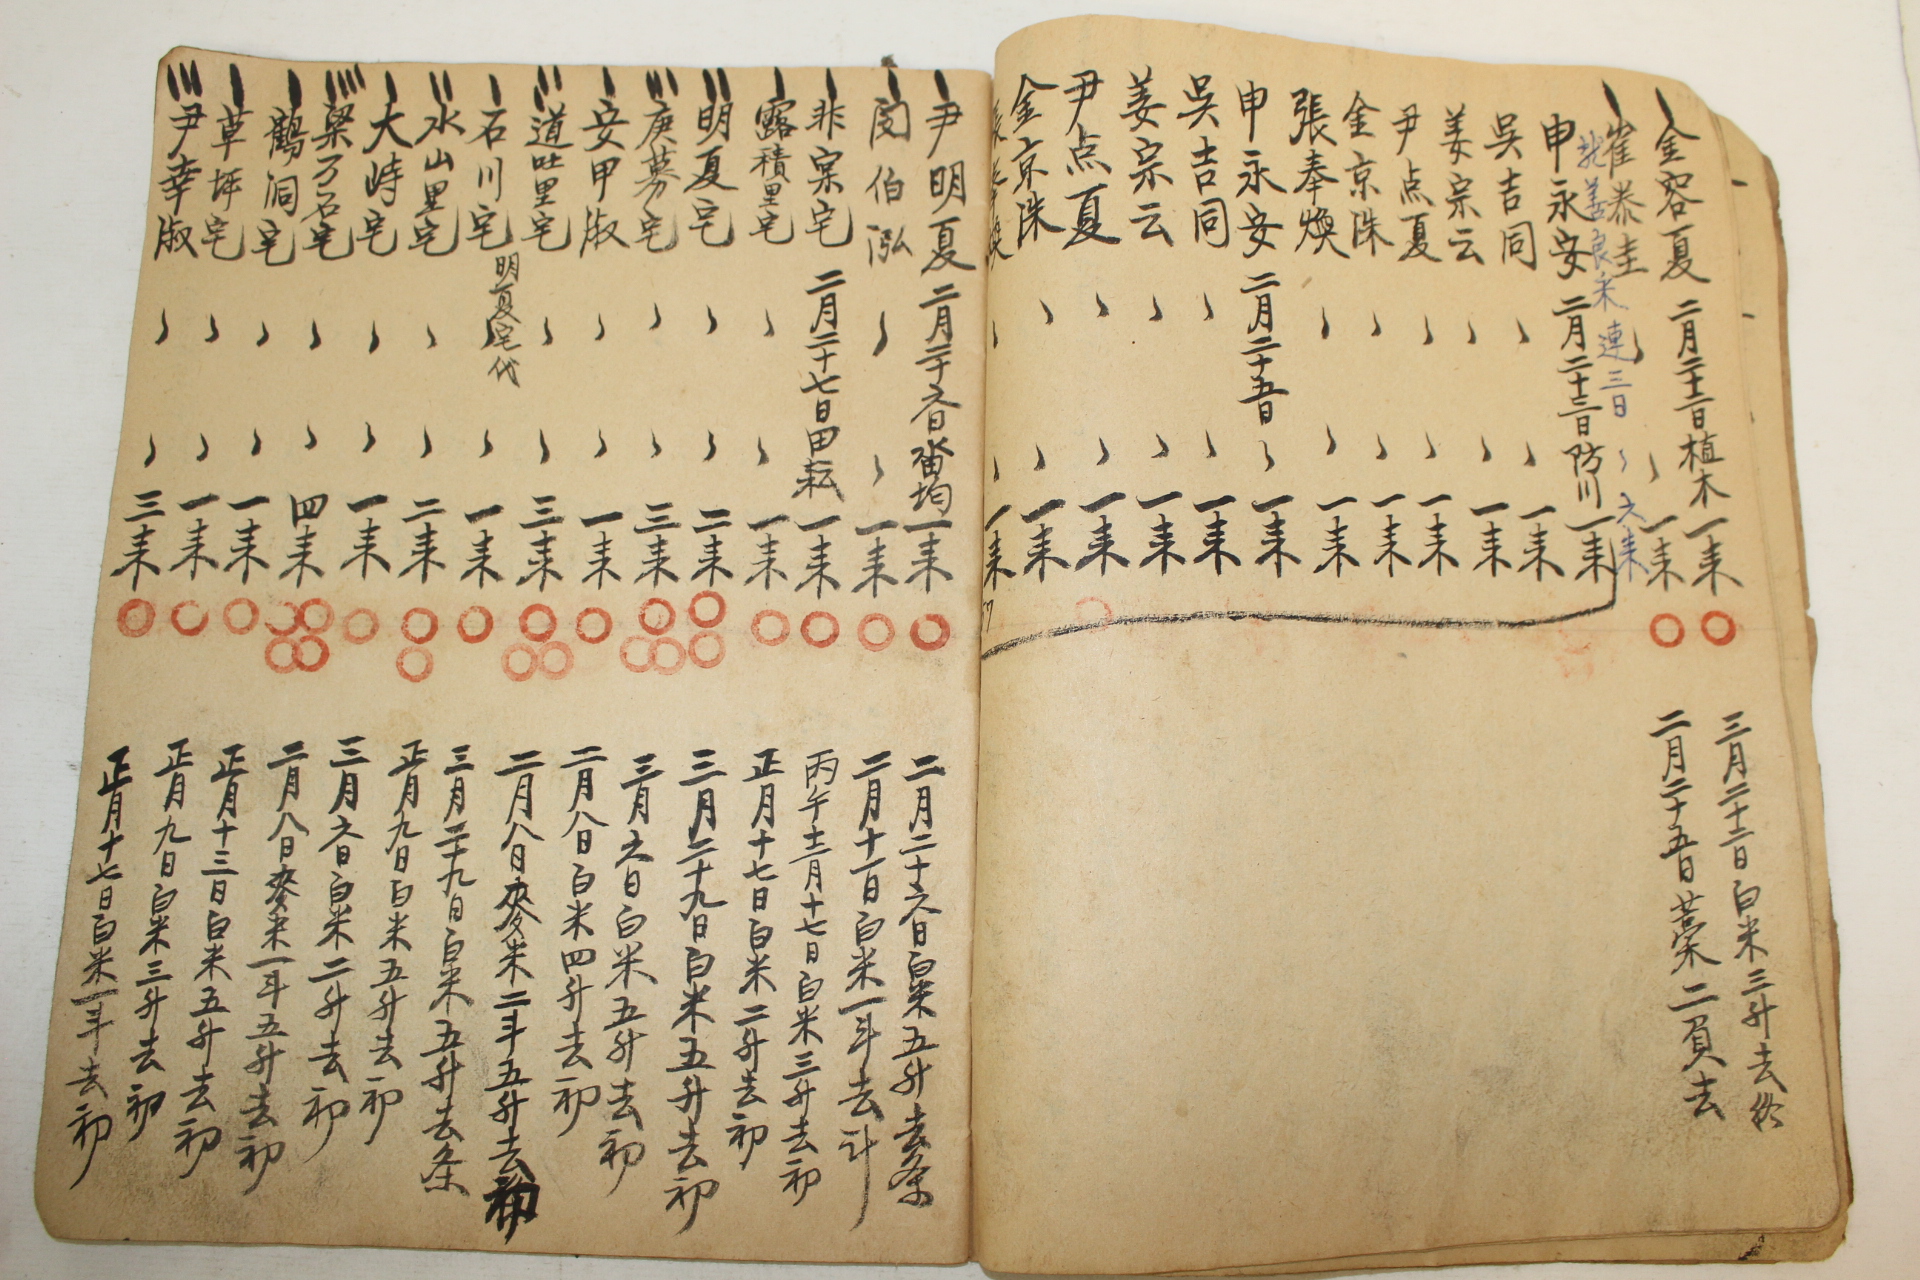 金容夏 二月二十二日植木 一来
崔泰圭 一来
申永安 二月二十三日防川 一来
吳吉同 一来
姜宗云 一来
尹点夏 一来
金京洙 一来
張奉煥 一来
申永安 二月二十五日 一来
吳吉同 一来
姜宗云 一来
尹点夏 一来
金京洙 一来
張奉煥 一来
三月二十二日白米三升去
二月二十五日藁二負去
尹明夏 二月二十六日畓均 一来
閔伯泓 一来
非宲宅 二月二十七日田耘 一来
露積里宅 一来
明夏宅 二来
庚募宅 三来
安甲淑 一来
道吐里宅 三来
石川宅 明夏宅代 一来
水山里宅 二来
大峙宅 一来
梁万石宅 四来
鶴洞宅 一来
草坪宅 一来
尹幸淑 三来
二月二十六日白米五升去条
二月十一日白米一斗去計
丙午十二月十七日白米三升去初
正月十七日白米二升去初
三月二十九日白米五升去初
三月六日白米五升去初
二月八日白米四升去初
二月八日麥米二斗五升去初
三月二十九日白米五升去条
正月九日白米五升去初
三月六日白米二升去初
二月八日麥米一斗五升去初
正月十三日白米五升去初
正月九日白米三升去初
正月十七日白米一斗去初